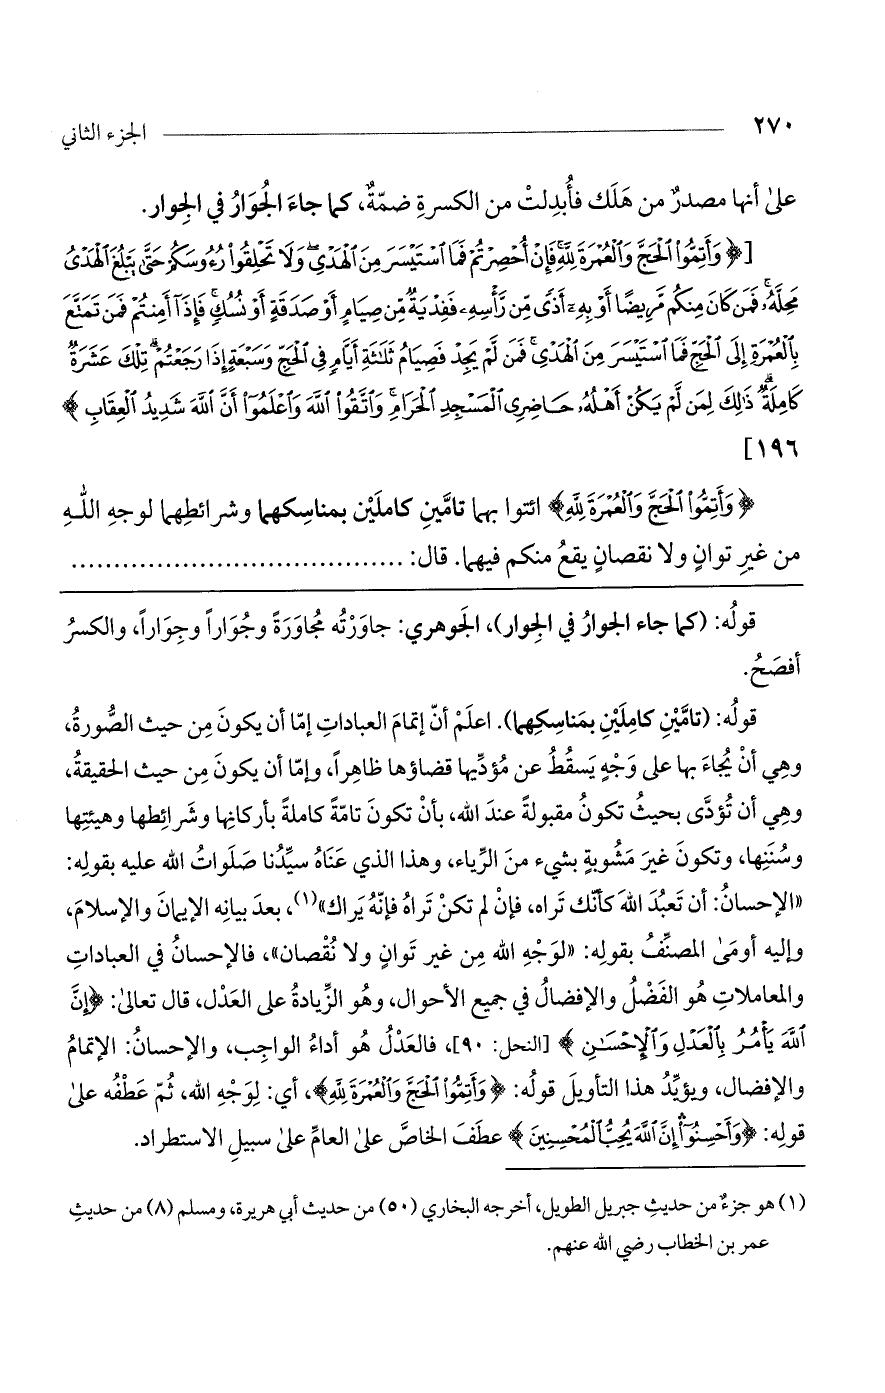 ٢٧٠ الجزء الثاني
على أنها مصدرٌ من هَلَك فأُبدِلتْ من الكسرةِ ضمّةٌ، كما جاءَ الجُوَارُ في الجِوار.
[﴿ وَأَتِمُّوا۟ ٱلْحَجَّ وَٱلْعُمْرَةَ لِلَّهِ ۚ فَإِنْ أُحْصِرْتُمْ فَمَا ٱسْتَيْسَرَ مِنَ ٱلْهَدْىِ ۖ وَلَا تَحْلِقُوا۟ رُءُوسَكُمْ حَتَّىٰ يَبْلُغَ ٱلْهَدْىُ
مَحِلَّهُۥ ۚ فَمَن كَانَ مِنكُم مَّرِيضًا أَوْ بِهِۦٓ أَذًى مِّن رَّأْسِهِۦ فَفِدْيَةٌ مِّن صِيَامٍ أَوْ صَدَقَةٍ أَوْ نُسُكٍ ۚ فَإِذَآ أَمِنتُمْ فَمَن تَمَتَّعَ
بِٱلْعُمْرَةِ إِلَى ٱلْحَجِّ فَمَا ٱسْتَيْسَرَ مِنَ ٱلْهَدْىِ ۚ فَمَن لَّمْ يَجِدْ فَصِيَامُ ثَلَـٰثَةِ أَيَّامٍ فِى ٱلْحَجِّ وَسَبْعَةٍ إِذَا رَجَعْتُمْ ۗ تِلْكَ عَشَرَةٌ
كَامِلَةٌ ۗ ذَٰلِكَ لِمَن لَّمْ يَكُنْ أَهْلُهُۥ حَاضِرِى ٱلْمَسْجِدِ ٱلْحَرَامِ ۚ وَٱتَّقُوا۟ ٱللَّهَ وَٱعْلَمُوٓا۟ أَنَّ ٱللَّهَ شَدِيدُ ٱلْعِقَابِ ﴾
١٩٦]
﴿ وَأَتِمُّوا۟ ٱلْحَجَّ وَٱلْعُمْرَةَ لِلَّهِ ﴾ ائتوا بهما تامَّينِ كاملَيْن بمناسِكهما وشرائطِهما لوجهِ اللّهِ
من غيرِ توانٍ ولا نقصانٍ يقعُ منكم فيهما. قال: .....................................
قولُه: (كما جاء الجوارُ في الجِوار)، الجَوهري: جاوَرْتُه مُجاوَرَةً وجُوَاراً وجِوَاراً، والكسرُ
أفصَحُ.
قولُه: (تامَّيْنِ كامِلَيْنِ بمَناسِكِهما). اعلَمْ أنّ إتمامَ العباداتِ إمّا أن يكونَ مِن حيث الصُّورةُ،
وهي أنْ يُجاءَ بها على وَجْهٍ يَسقُطُ عن مُؤدِّيها قضاؤها ظاهِراً، وإمّا أن يكونَ مِن حيث الحقيقةُ،
وهي أن تُؤدَّى بحيثُ تكونُ مقبولةً عندَ الله، بأنْ تكونَ تامّةً كاملةً بأركانِها وشَرائطِها وهيئتِها
وسُنَنِها، وتكونَ غيرَ مَشُوبةٍ بشيء منَ الرِّياء، وهذا الذي عَنَاهُ سيِّدُنا صَلَواتُ الله عليه بقولِه:
«الإحسانُ: أن تَعبُدَ اللهَ كأنّك تَراه، فإنْ لم تكنْ تَراهُ فإنّهُ يَراك»(١)، بعدَ بيانِه الإيمانَ والإسلامَ،
وإليه أومَىٰ المصنِّفُ بقولِه: «لوَجْهِ الله مِن غير تَوانٍ ولا نُقْصان»، فالإحسانُ في العباداتِ
والمعاملاتِ هُو الفَضْلُ والإفضالُ في جميع الأحوال، وهُو الزِّيادةُ على العَدْل، قال تعالىٰ: ﴿إِنَّ
ٱللَّهَ يَأْمُرُ بِٱلْعَدْلِ وَٱلْإِحْسَـٰنِ ﴾ [النحل: ٩٠]، فالعَدْلُ هُو أداءُ الواجِب، والإحسانُ: الإتمامُ
والإفضال، ويؤيِّدُ هذا التأويلَ قولُه: ﴿ وَأَتِمُّوا۟ ٱلْحَجَّ وَٱلْعُمْرَةَ لِلَّهِ﴾، أي: لِوَجْهِ الله، ثُمّ عَطْفُه علىٰ
قولِه: ﴿وَأَحْسِنُوٓا۟ ۛ إِنَّ ٱللَّهَ يُحِبُّ ٱلْمُحْسِنِينَ ﴾ عطفَ الخاصِّ علىٰ العامِّ علىٰ سبيلِ الاستطراد.
(١) هو جزءٌ من حديثِ جبريل الطويل، أخرجه البخاري (٥٠) من حديث أبي هريرة، ومسلم (٨) من حديثِ
عمر بن الخطاب رضي الله عنهم.